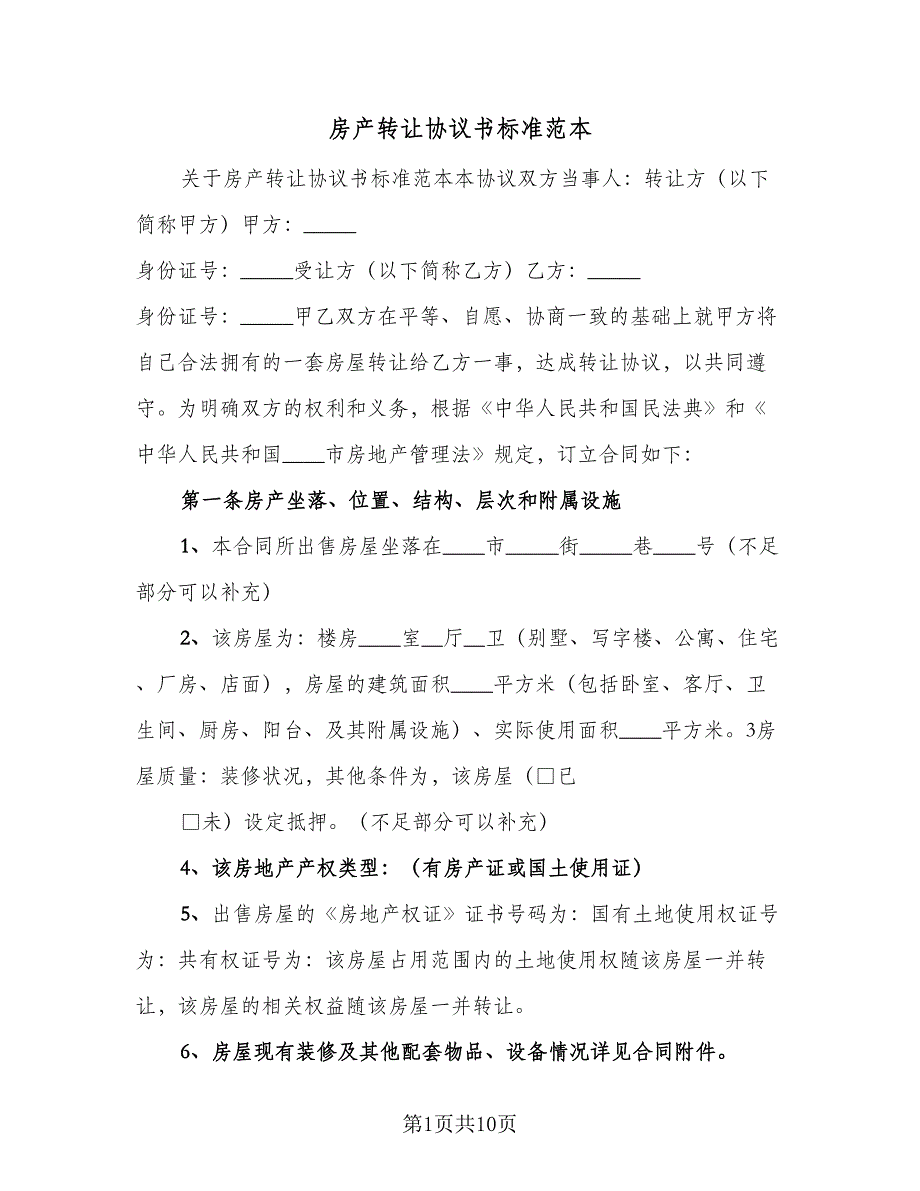 房产转让协议书标准范本
关于房产转让协议书标准范本本协议双方当事人：转让方（以下
简称甲方）甲方：_____
身份证号：_____受让方（以下简称乙方）乙方：_____
身份证号：_____甲乙双方在平等、自愿、协商一致的基础上就甲方将
自己合法拥有的一套房屋转让给乙方一事，达成转让协议，以共同遵
守。为明确双方的权利和义务，根据《中华人民共和国民法典》和《
中华人民共和国____市房地产管理法》规定，订立合同如下：
第一条房产坐落、位置、结构、层次和附属设施
1、本合同所出售房屋坐落在____市_____街_____巷____号（不足
部分可以补充）
2、该房屋为：楼房____室__厅__卫（别墅、写字楼、公寓、住宅
、厂房、店面），房屋的建筑面积____平方米（包括卧室、客厅、卫
生间、厨房、阳台、及其附属设施）、实际使用面积____平方米。3房
屋质量：装修状况，其他条件为，该房屋（□已
□未）设定抵押。（不足部分可以补充）
4、该房地产产权类型：（有房产证或国土使用证）
5、出售房屋的《房地产权证》证书号码为：国有土地使用权证号
为：共有权证号为：该房屋占用范围内的土地使用权随该房屋一并转
让，该房屋的相关权益随该房屋一并转让。
6、房屋现有装修及其他配套物品、设备情况详见合同附件。
第1页共10页